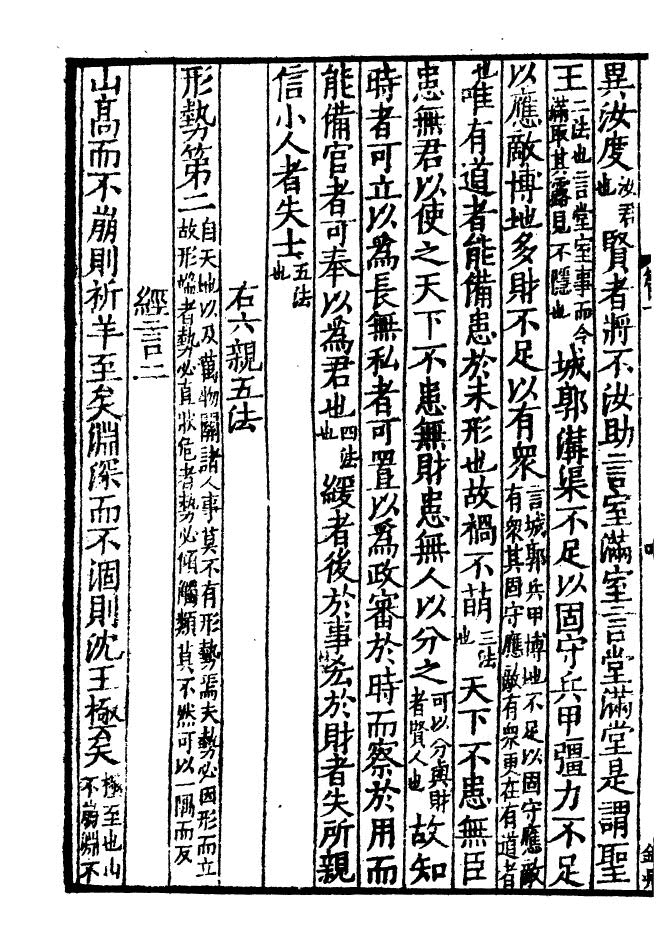 異汝度汝君也賢者將不汝助言室滿室言堂滿堂是謂聖
王二法也言堂室事而令滿取其露見不隱也城郭溝渠不足以固守兵甲彊力不足
以應敵博地多財不足以有衆言城郭兵甲博地不足以固守應敵有衆其固守應敵有衆更在有道者
也唯有道者能備患於未形也故禍不萌三法也天下不患無臣
患無君以使之天下不患無財患無人以分之可以分與財者賢人也故知
時者可立以爲長無私者可置以爲政審於時而察於用而
能備官者可奉以爲君也四法也緩者後於事吝於財者失所親
信小人者失士五法也
右六親五法
形勢第二自天地以及萬物關諸人事莫不有形勢焉夫勢必因形而立故形端者勢必直狀危者勢必傾觸類莫不然可以一隅而反
經言二
山高而不崩則祈羊至矣淵深而不涸則沈玉極矣極至也山不崩淵不